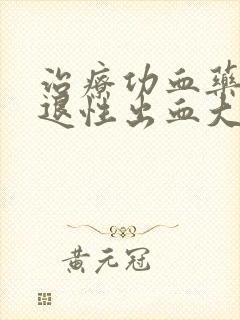 治療功血藥
退性出血大
黃元冠